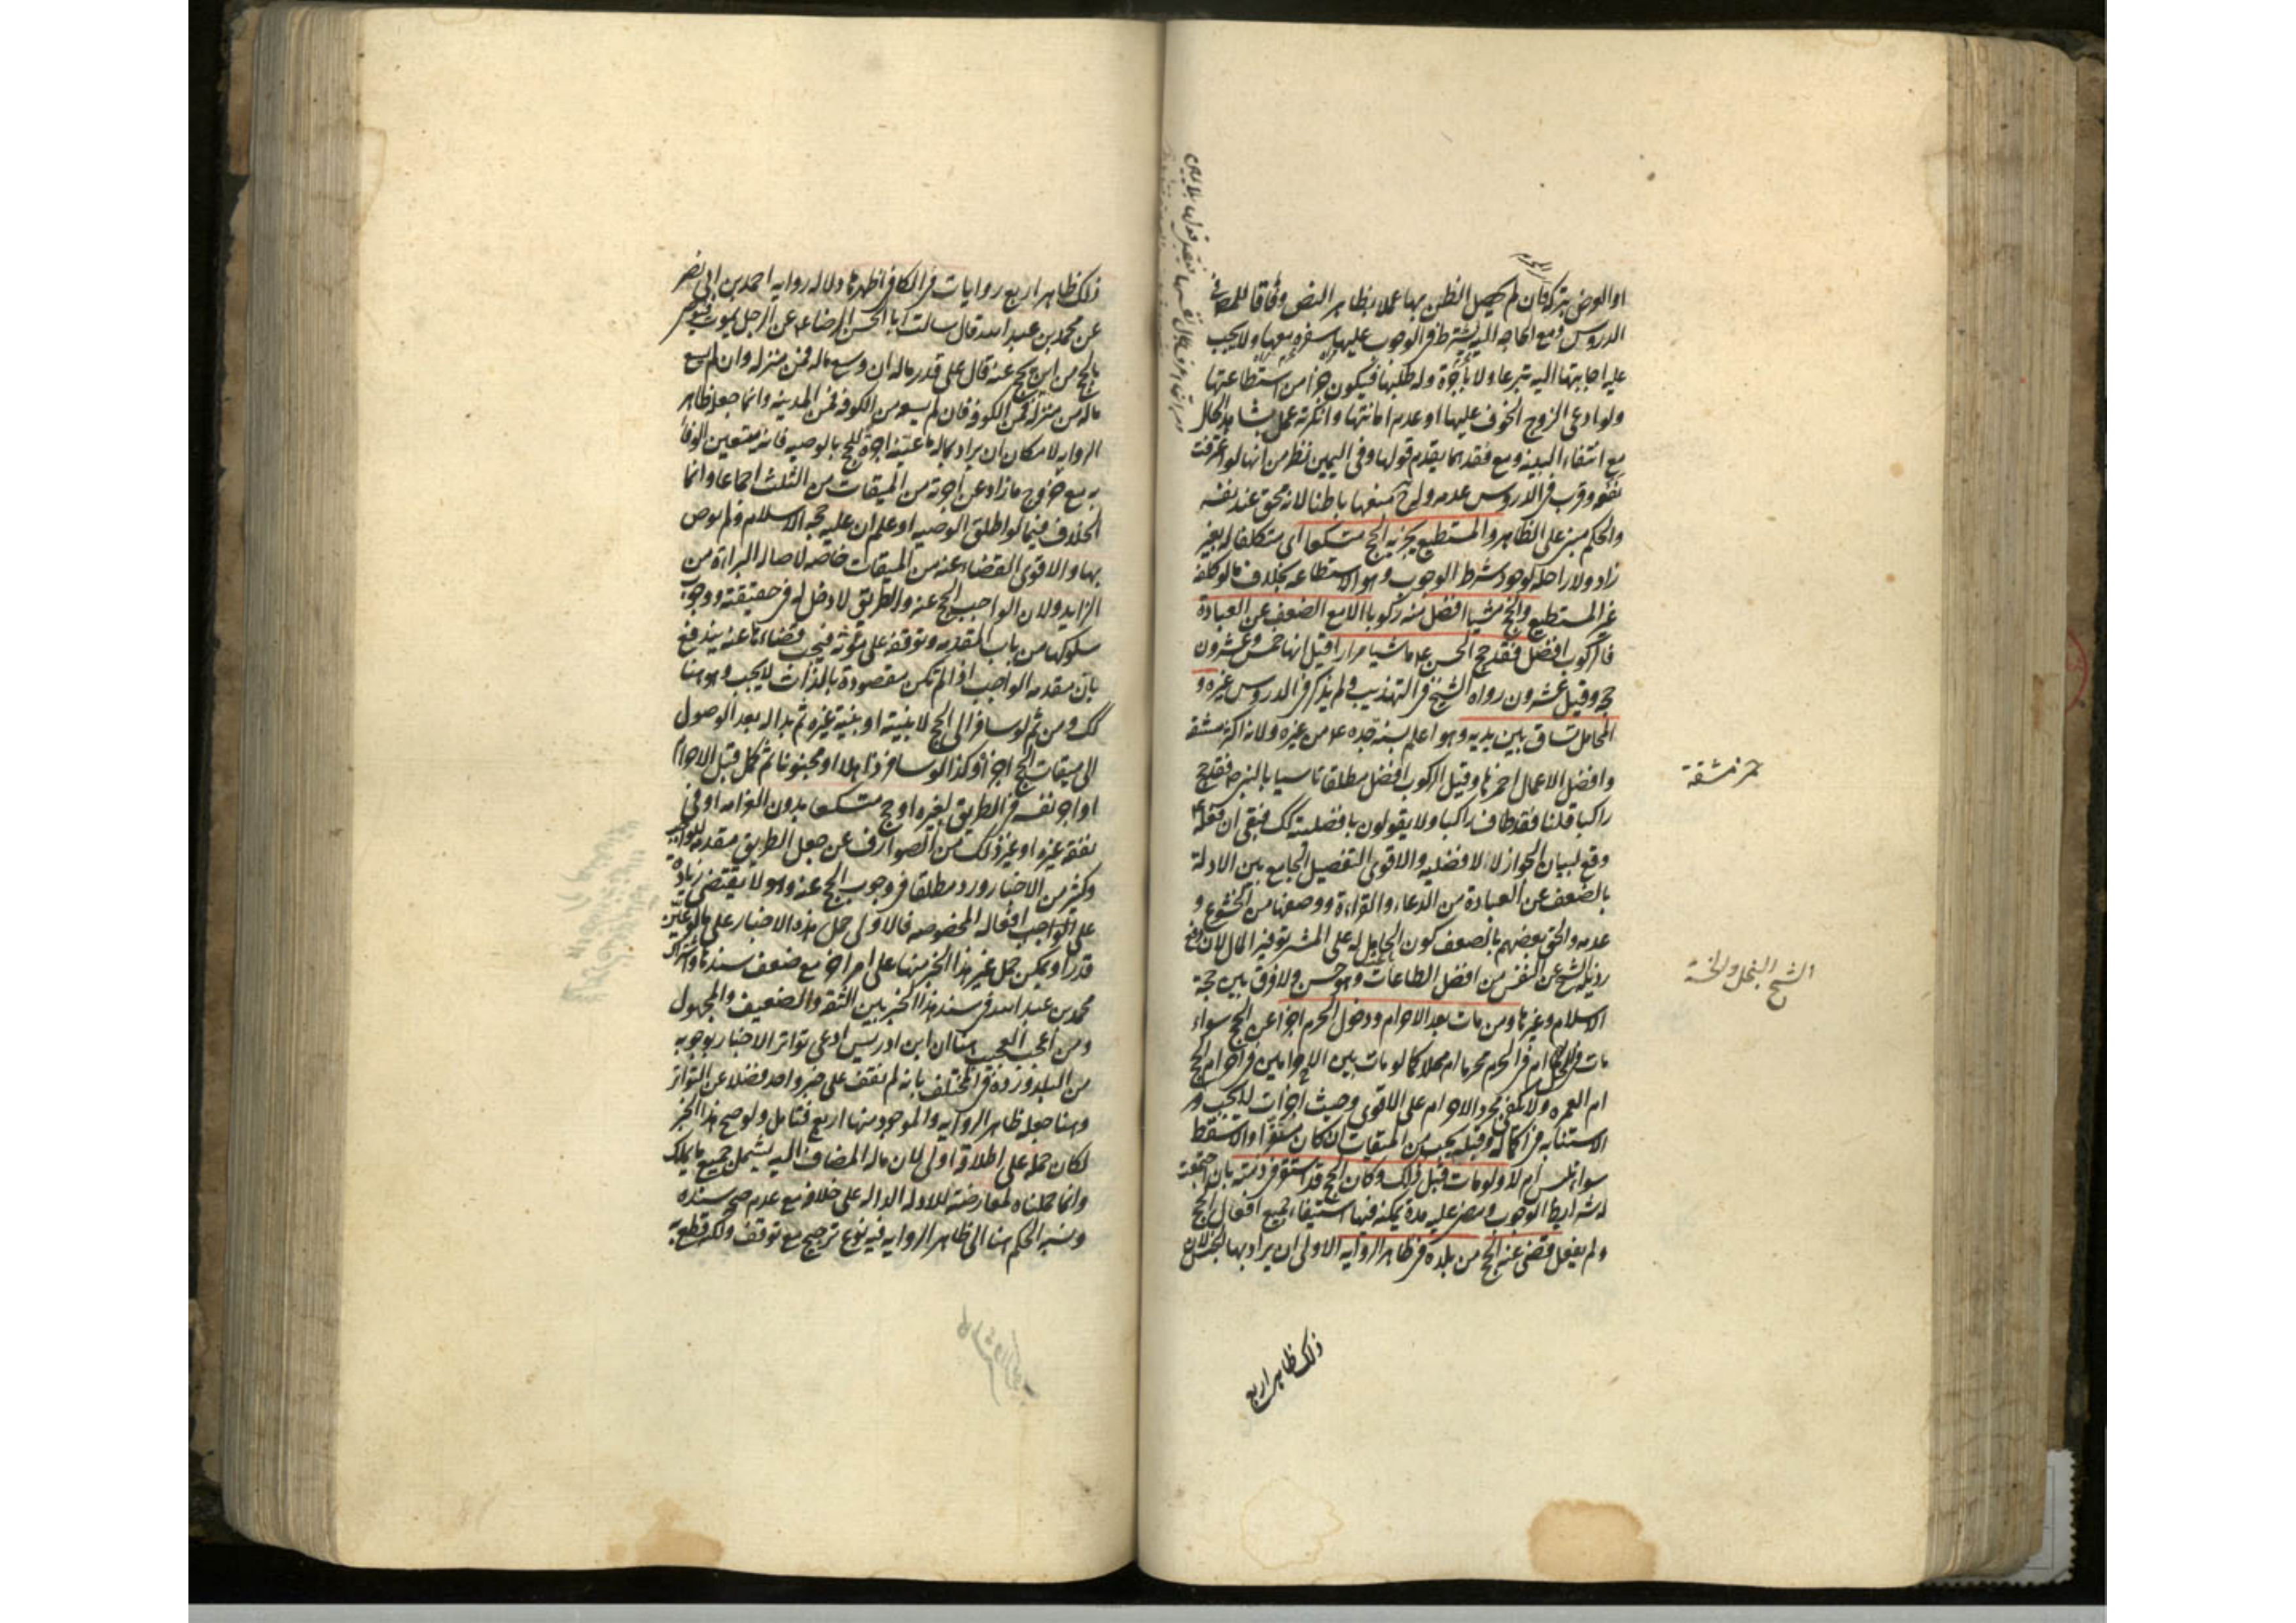 او العرض بتركه فان لم يحصل الظن بها عملا بظاهر النص وفاقا للمص في
الدروس ومع الحاجه اليه يشترط في الوجوب عليها سفره معها ولا يجب
عليه اجابتها اليه تبرعا ولا بأجرة وله طلبها فيكون جزأ من استطاعتها
ولو ادعى الزوج الخوف عليها او عدم امانتها وانكرته عمل بشاهد الحال
مع انتفاء البينه ومع فقدهما يقدم قولها وفي اليمين نظر من انها لو اعترفت
نفعه وقرب في الدروس عدمه وله ح منعها باطنا لانه محق عند نفسه
والحكم مبني على الظاهر والمستطيع يجزيه الحج متسكعا اي متكلفا له بغير
زاد ولا راحله لوجود شرط الوجوب وهو الاستطاعه بخلاف ما لو تكلفه
غير المستطيع والحج مشيا افضل منه ركوبا الا مع الضعف عن العبادة
فالركوب افضل فقد حج الحسن ع ماشيا مرارا قيل انها خمس وعشرون
حجه وقيل عشرون رواه الشيخ في التهذيب ولم يذكر في الدروس غيره و
المحامل تساق بين يديه وهو اعلم بسنة جده ع من غيره ولانه اكثر مشقة
وافضل الاعمال احمزها وقيل الركوب افضل مطلقا تاسيا بالنبي ص فقد حج
راكبا قلنا فقد طاف راكبا ولا يقولون بافضليته كك فبقي ان فعله ع
وقع لبيان الجواز لا الافضليه والاقوى التفصيل الجامع بين الادلة
بالضعف عن العبادة من الدعاء والقراءة ووصفها من الخشوع و
عدمه والحق بعضهم بالضعف كون الحامل له على المشي توفير المال لان دفع
رذيلة الشح عن النفس من افضل الطاعات وهو حسن ولا فرق بين حجة
الاسلام وغيرها ومن مات بعد الاحرام ودخول الحرم اجزأ عن الحج سواء
مات في الحل ام في الحرم محرما ام محلا كما لو مات بين الاحرامين في احرام الحج
ام العمره ولا يكفي مجرد الاحرام على الاقوى وحيث اجزأت لا يجب
الاستنابه في اكماله وقبله يجب من الميقات ان كان مستقرا والا سقط
سواء تلبس ام لا ولو مات قبل ذلك وكان الحج قد استقر في ذمته بان اجتمعت
له شرايط الوجوب ومضى عليه مدة يمكنه فيها استيفاء جميع افعال الحج
ولم يفعل قضى عنه الحج من بلده في ظاهر الروايه الاولى ان يراد بها الجنس لان
ذلك ظاهر اربع
حمز مشقة
الشح البخل والخسة
ذلك ظاهر اربع روايات في الكافي اظهرها دلاله روايه احمد بن ابي نصر
عن محمد بن عبد الله قال سالت ابا الحسن الرضا ع عن الرجل يموت فيوصي
بالحج من اين يحج عنه قال على قدر ماله ان وسعه ماله فمن منزله وان لم يسعه
ماله من منزله فمن الكوفه فان لم يسعه من الكوفه فمن المدينه وانما جعله ظاهر
الروايه لامكان ان يراد بماله ما عينه اجرة للحج بالوصيه فانه يتعين الوفاء
به مع خروج ما زاد عن اجرته من الميقات من الثلث اجماعا وانما
الخلاف فيما لو اطلق الوصيه او علم ان عليه حجة الاسلام ولم يوص
بها والاقوى القضاء عنه من الميقات خاصه لاصالة البراءة من
الزايد ولان الواجب الحج عنه والطريق لا دخل له في حقيقته ووجوب
سلوكها من باب المقدمه وتوقفه على مؤنه فيجب قضاءها عنه يندفع
بان مقدمة الواجب اذا لم تكن مقصودة بالذات لا يجب وهو هنا
كك ومن ثم لو سافر الى الحج لا بنيته او بنية غيره ثم بدا له بعد الوصول
الى ميقات الحج اجزأ وكذا لو سافر ذاهلا او مجنونا ثم كمل قبل الاحرام
او اجر نفسه في الطريق لغيره او حج متسكعا بدون الغرامه او في
نفقة غيره او غير ذلك من الصوارف عن جعل الطريق مقدمة للواجب
وكثير من الاخبار ورد مطلقا في وجوب الحج عنه وهو لا يقتضي زيادة
على الواجب افعاله المخصوصه فالاولى حمل هذه الاخبار على ما لو عين
قدرا ويمكن حمل غير هذا الخبر منها على امر اخر مع ضعف سندها واشتراك
محمد بن عبد الله في سند هذا الخبر بين الثقه والضعيف والمجهول
ومن اعجب العجب هنا ان ابن ادريس ادعى تواتر الاخبار بوجوبه
من البلد ورده في المختلف بانه لم نقف على خبر واحد فضلا عن التواتر
وهنا جعله ظاهر الروايه والموجود منها اربع فتامل ولو صح هذا الخبر
لكان حمله على اطلاقه اولى لان ماله المضاف اليه يشمل جميع ما يملك
وانما حملناه لمعارضته للادله الداله على خلافه مع عدم صحة سنده
ونسبة الحكم هنا الى ظاهر الروايه فيه نوع ترجيح مع توقف ولكنه قطع به